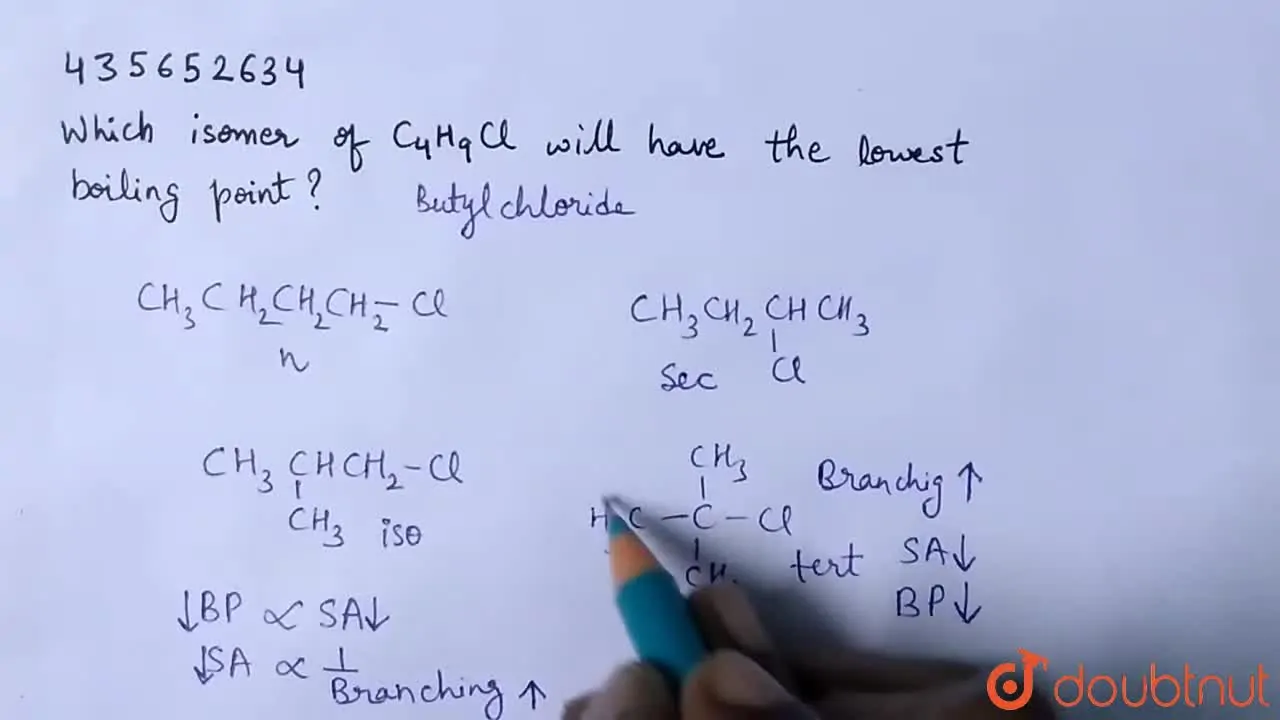 435652634
Which isomer of C4H9Cl will have the lowest
boiling point? Butyl chloride
CH3CH2CH2CH2-Cl
n
CH3CH2CHCH3
Cl
Sec
CH3CHCH2-Cl
CH3 iso
CH3
H C-C-Cl
CH
tert
Branchig ↑
SA↓
BP↓
↓BP ∝ SA↓
↓SA ∝ 1
Branching ↑
doubtnut